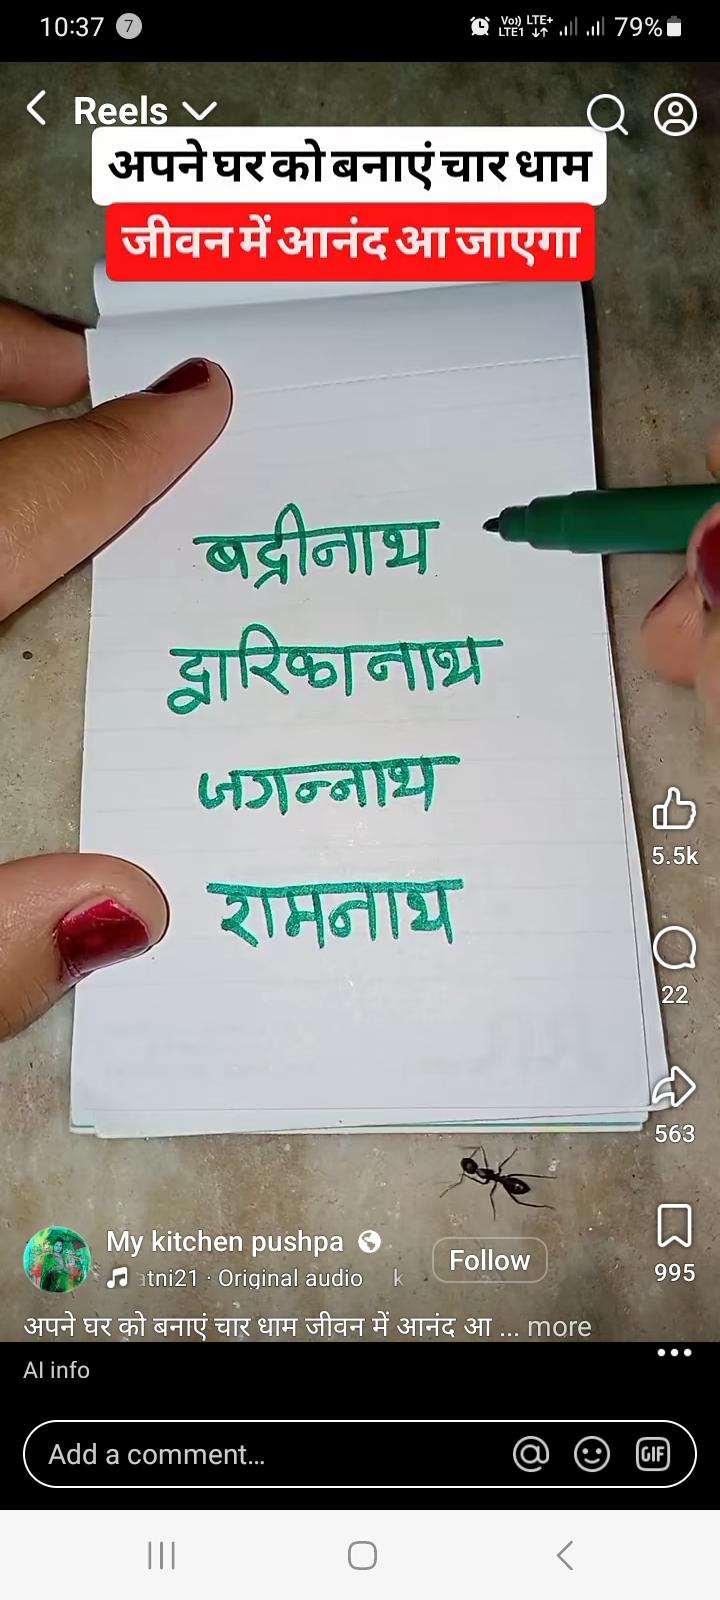 10:37 7 Vo)) LTE+ LTE1 79%
Reels
अपने घर को बनाएं चार धाम
जीवन में आनंद आ जाएगा
बद्रीनाथ
द्वारिकानाथ
जगन्नाथ
रामनाथ
5.5k
22
563
995
My kitchen pushpa
atni21 · Original audio k
Follow
अपने घर को बनाएं चार धाम जीवन में आनंद आ ... more
AI info
Add a comment...
GIF